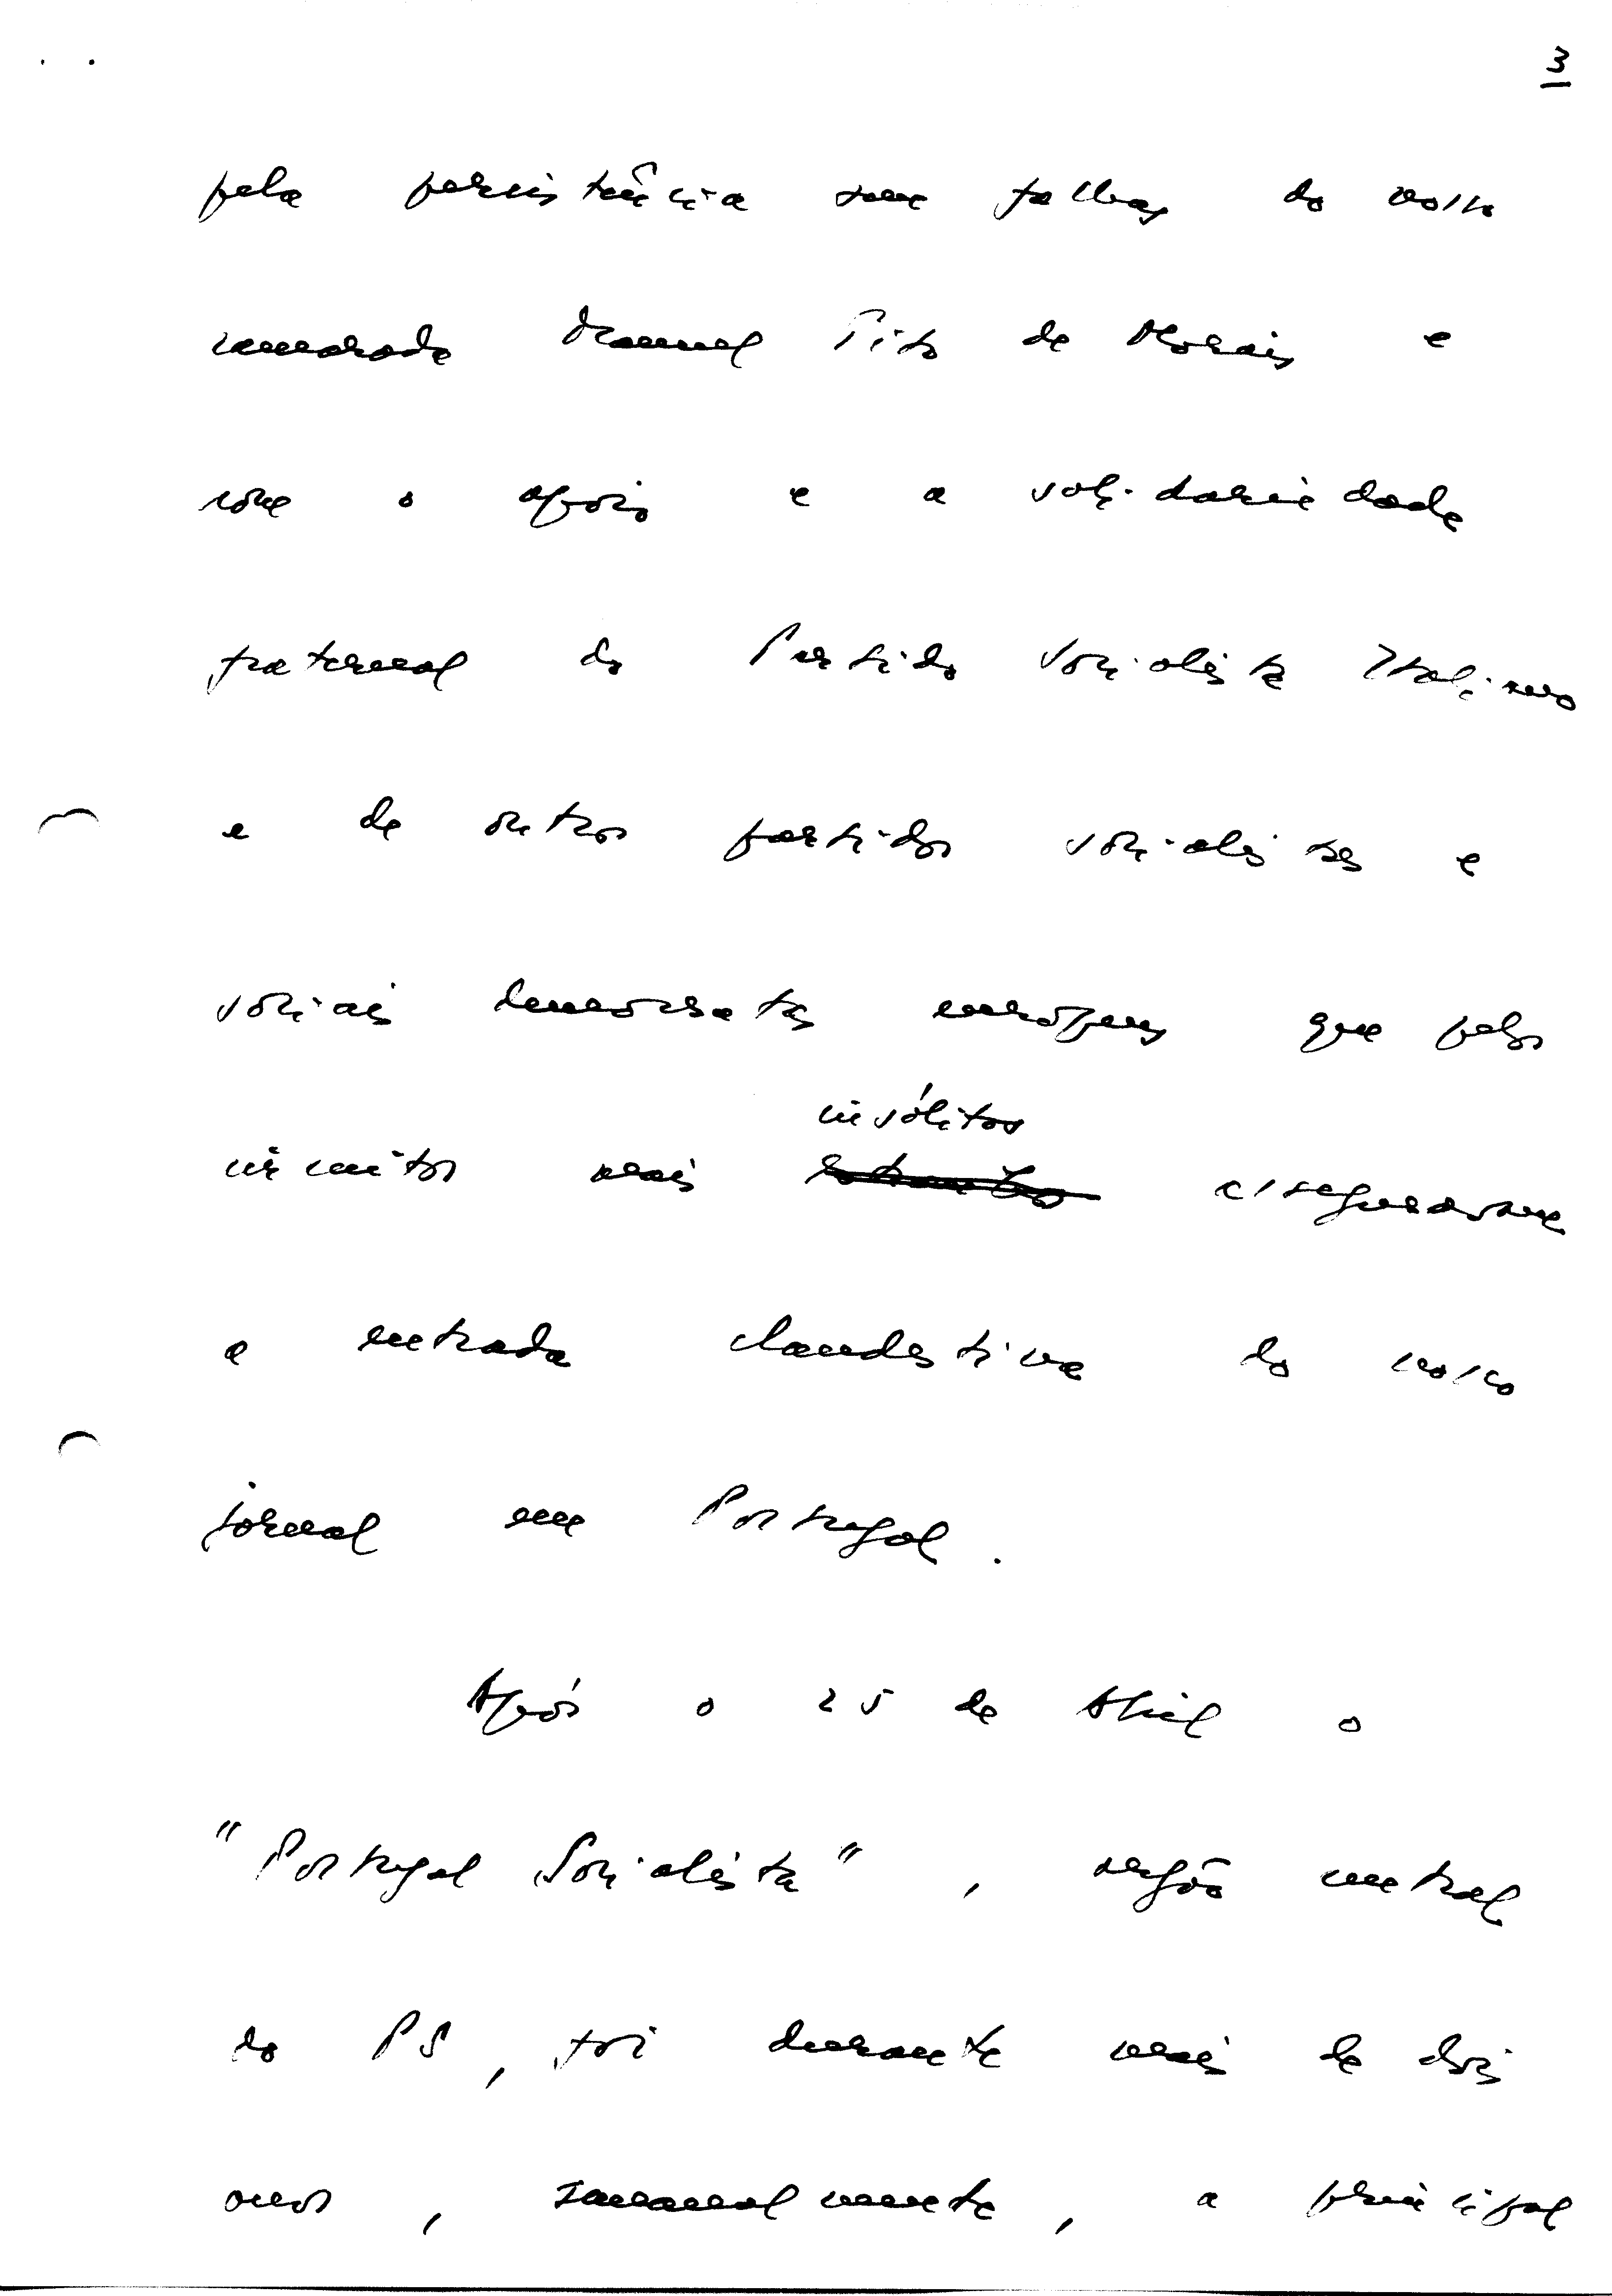 3
pela persistência sem falhas do nosso
camarada Manuel Tito de Morais e
com o apoio e a solidariedade
fraternal do Partido Socialista Italiano
e de outros partidos socialistas e
sociais democratas europeus que pelos
insólitos
circuitos mais asseguravam
a entrada clandestina do nosso
jornal em Portugal.
Após o 25 de Abril o
"Portugal Socialista", orgão central
do PS, foi durante mais de dois
anos, semanalmente, a principal